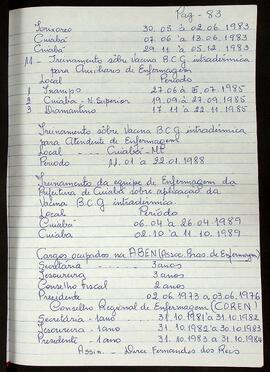 Pag - 83
30.05 à 02.06.1983
Cuiabá 07.06 à 13.06.1983
Cuiabá 29.11 à 05.12.1983
11- Treinamento sôbre Vacina B.C.G. intradérmica
para Auxiliares de Enfermagem
Local Período
1 27.06 à 07.1985
2 Cuiabá - N. Superior 19.09 à 27.09.1985
3 Diamantino 17.11 à 22.11.1985
Treinamento sôbre Vacina B.C.G intradérmica
para Atendente de Enfermagem
Local - Cuiabá - MT
Período - 11.01 à 22.01.1988
Treinamento da equipe de Enfermagem da
Prefeitura de Cuiabá sôbre aplicação da
Vacina B.C.G intradérmica.
Local Período
Cuiabá 06.04 à 26.04.1989
Cuiabá 02.10 à 11.10.1989
Cargos ocupados na ABEN (Assoc. Bras. de Enfermagem)
Secretária - 3 anos
Tesoureira - 3 anos
Conselho Fiscal - 2 anos
Presidente 02.06.1973 a 03.06.1976
Conselho Regional de Enfermagem (COREN)
Secretária - 1 ano 31.10.1981 a 31.10.1982
Tesoureira - 1 ano 31.10.1982 a 30.10.1983
Presidente - 1 ano 31.10.1983 a 31.10.1984
Assin. Dirce Fernandes dos Reis